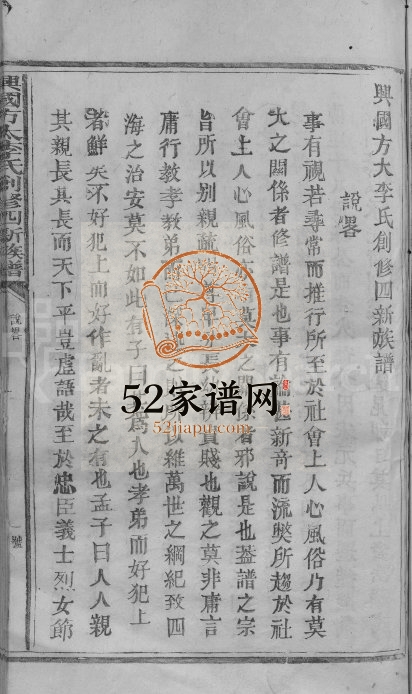 興國方大李氏創修四新族譜
說畧
事有視若尋常而推行所至於社會上人心風俗乃有莫
大之關係者修譜是也事有新奇而流獘所趨於社
會上人心風俗者邪說是也蓋譜之宗
旨所以別親賤也觀之莫非庸言
庸行教孝教弟以維萬世之綱紀致四
海之治安莫不如此有子曰為人也孝弟而好犯上
者鮮矣不好犯上而好作亂者未之有也孟子曰人人親
其親長其長而天下平豈虛語哉至於忠臣義士烈女節
興國方大李氏創修四新族譜
說畧
一號
52家谱网
52jiapu.com